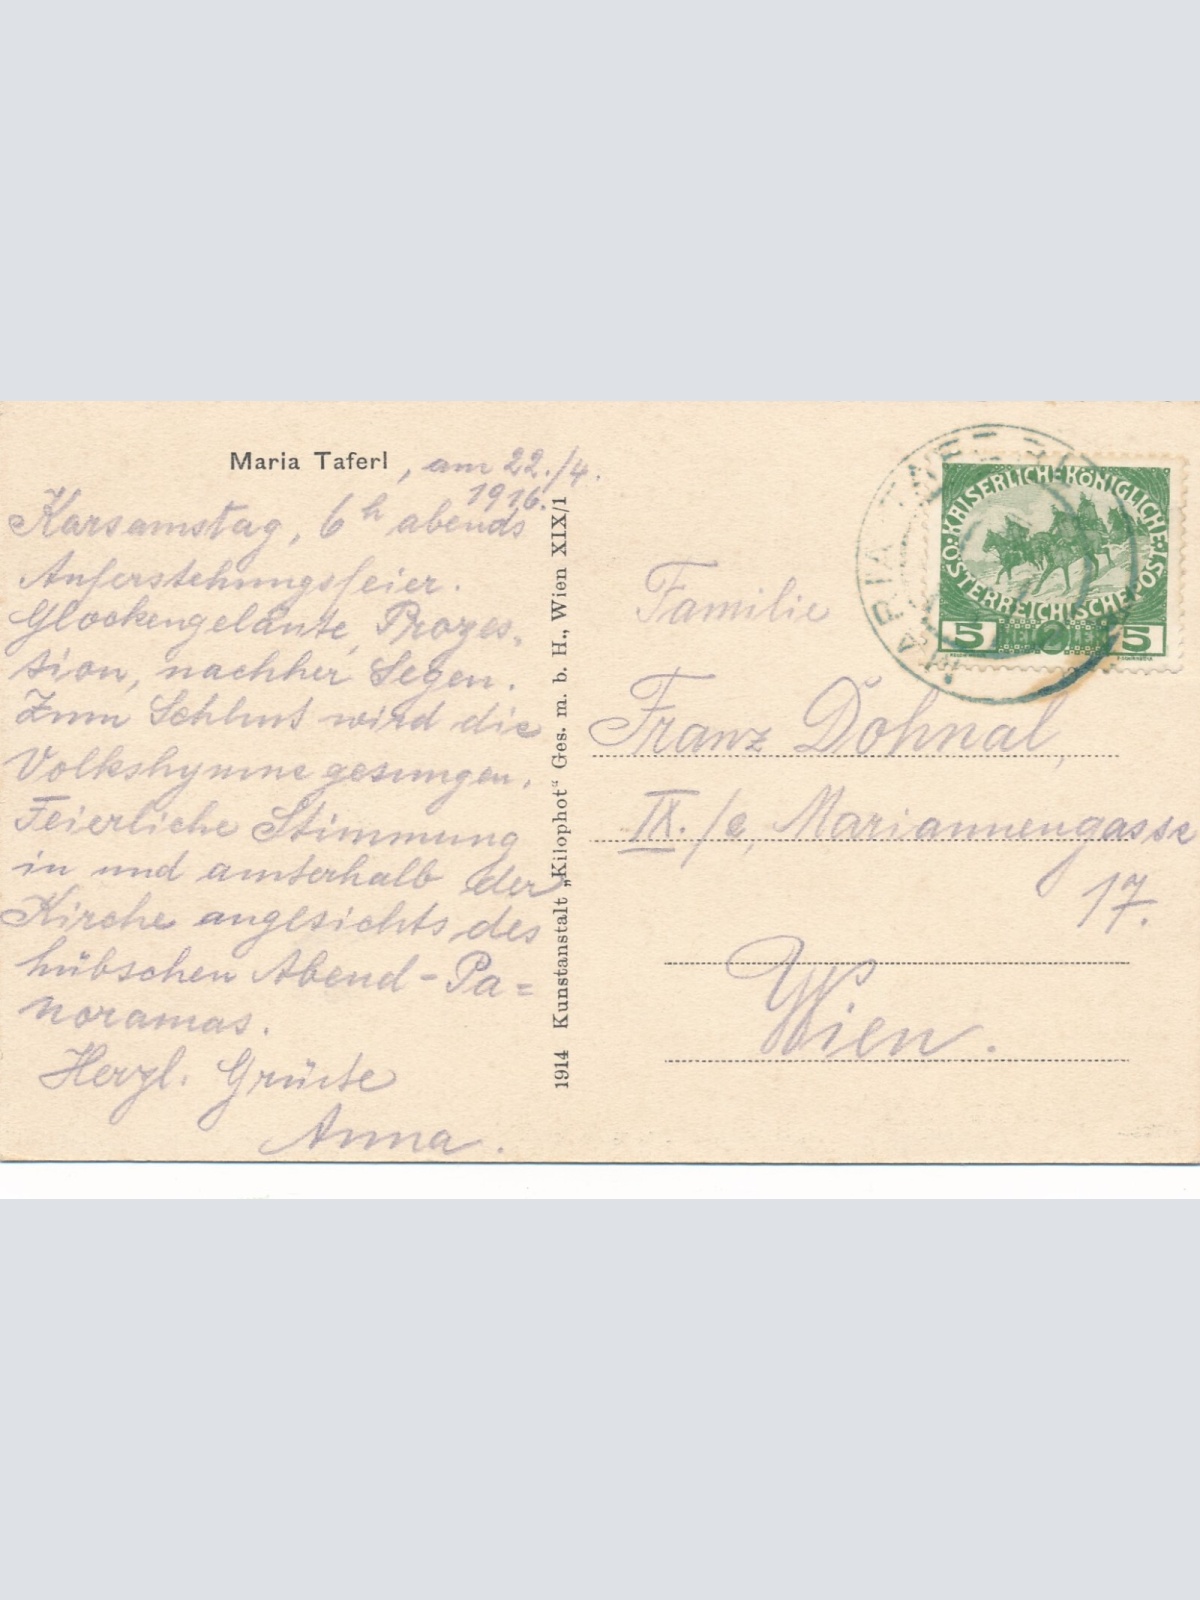 Maria Taferl, am 22./4.
1916.
Karsamstag, 6h abends
Auferstehungsfeier.
Glockengeläute, Prozes-
sion, nachher Segen.
Zum Schluß wird die
Volkshymne gesungen.
Feierliche Stimmung
in und außerhalb der
Kirche angesichts des
hübschen Abend-Pa=
noramas.
Herzl. Grüße
Anna.
1914 Kunstanstalt „Kilophot“ Ges. m. b. H., Wien XIX/1
KAISERLICHE KÖNIGLICHE
ÖSTERREICHISCHE POST
5 2 5
Familie
Franz Dohnal,
IX./e, Mariannengasse
17.
Wien.